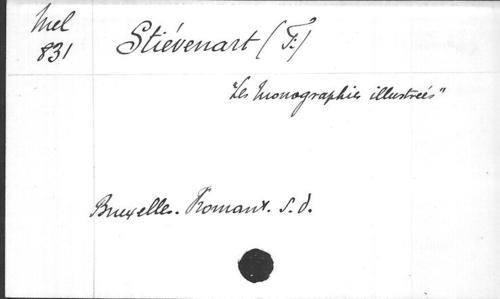 Mel
831
Stiévenart (F.)
"Les Monographies illustrées"
Bruxelles. Romant. s.d.